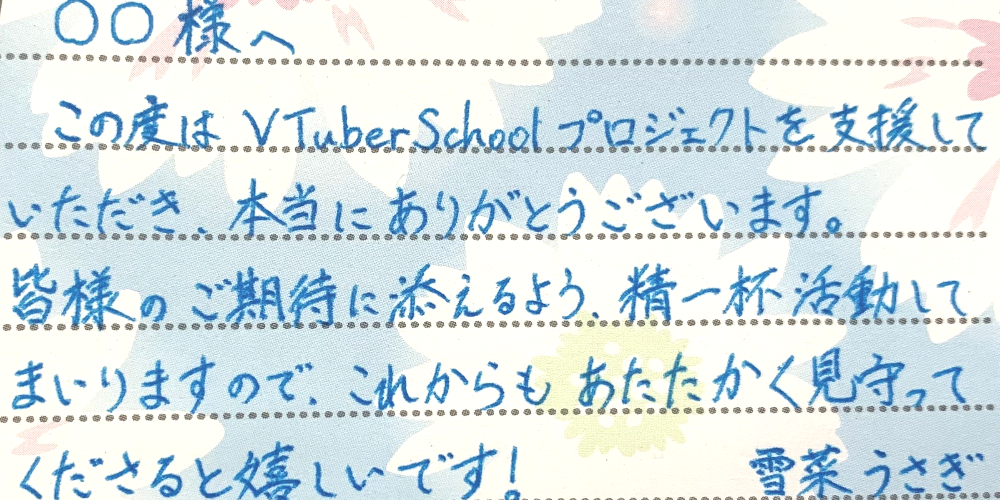 〇〇様へ
この度は VTuberSchoolプロジェクトを支援して
いただき、本当にありがとうございます。
皆様のご期待に添えるよう、精一杯活動して
まいりますので、これからもあたたかく見守って
くださると嬉しいです! 雪菜うさぎ